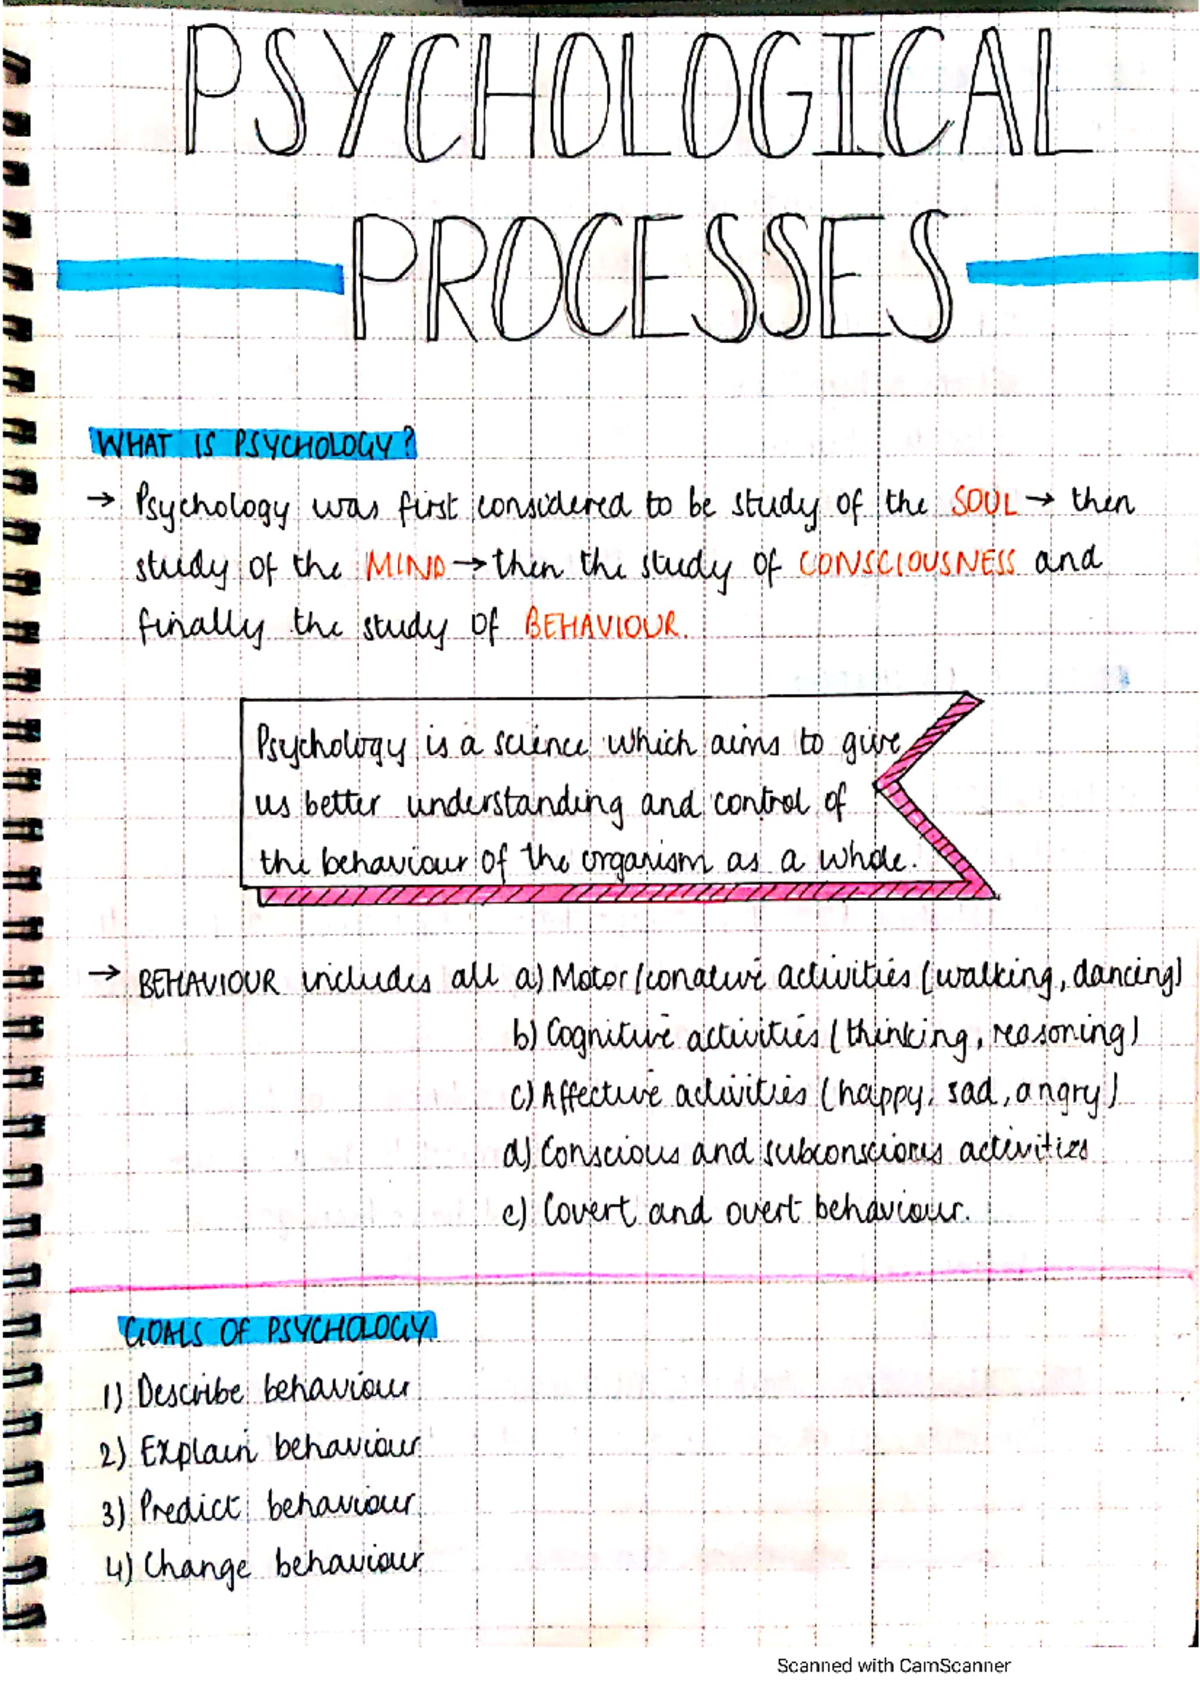 PSYCHOLOGICAL
PROCESSES
WHAT IS PSYCHOLOGY?
→ Psychology was first considered to be study of the SOUL → then
study of the MIND → then the study of CONSCIOUSNESS and
finally the study of BEHAVIOUR.
Psychology is a science which aims to give
us better understanding and control of
the behaviour of the organism as a whole.
→ BEHAVIOUR includes all a) Motor/conative activities (walking, dancing)
b) Cognitive activities (thinking, reasoning)
c) Affective activities (happy, sad, angry)
d) Conscious and subconscious activities
e) Covert and overt behaviour.
GOALS OF PSYCHOLOGY
1) Describe behaviour
2) Explain behaviour
3) Predict behaviour
4) Change behaviour
Scanned with CamScanner